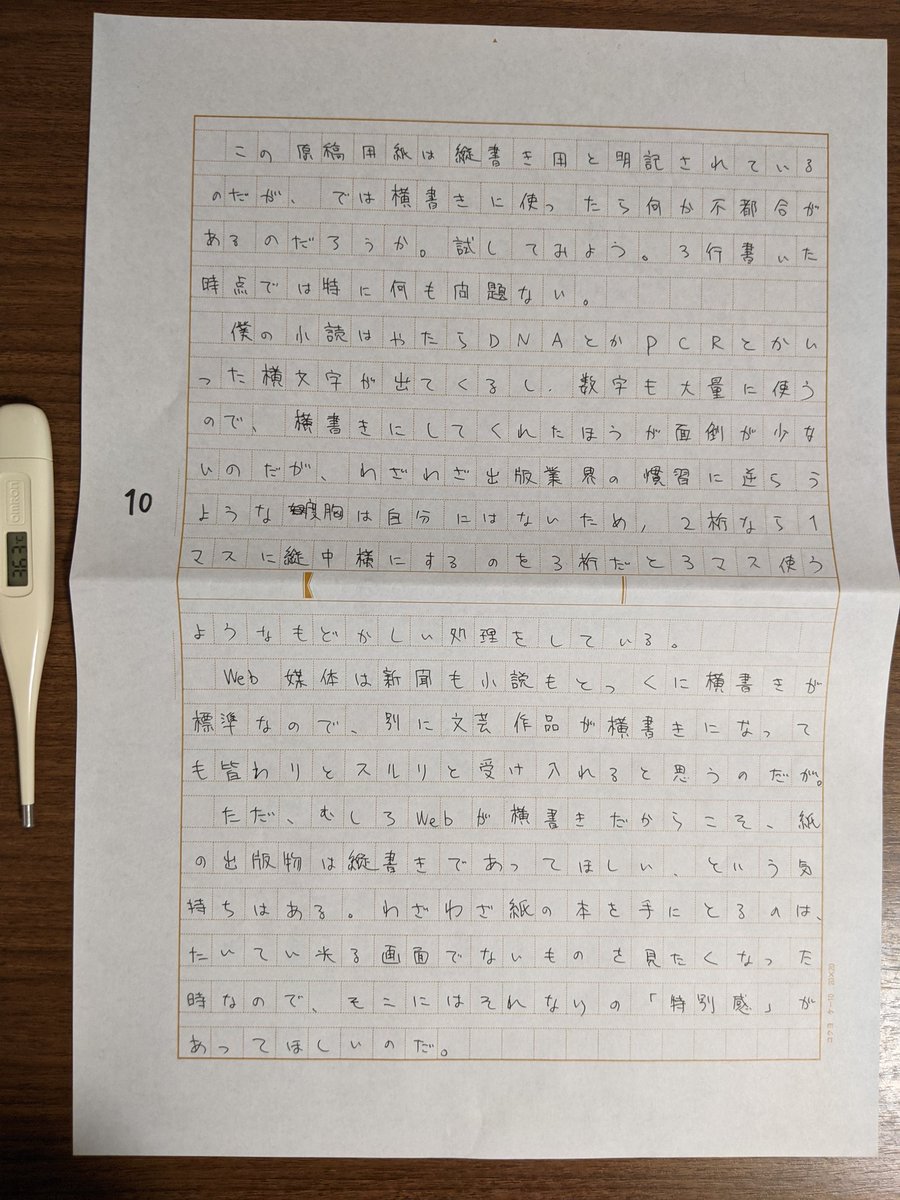 この原稿用紙は縦書き用と明記されている
のだが、では横書きに使ったら何か不都合が
あるのだろうか。試してみよう。3行書いた
時点では特に何も問題ない。
僕の小説はやたらDNAとかPCRとかい
った横文字が出てくるし、数字も大量に使う
ので、横書きにしてくれたほうが面倒が少な
いのだが、わざわざ出版業界の慣習に逆らう
ような度胸は自分にはないため、2桁なら1
マスに縦中横にするのを3桁だと3マス使う
ようなもどかしい処理をしている。
Web媒体は新聞も小説もとっくに横書きが
標準なので、別に文芸作品が横書きになって
も皆わりとスルリと受け入れると思うのだが。
ただ、むしろWebが横書きだからこそ、紙
の出版物は縦書きであってほしい、という気
持ちはある。わざわざ紙の本を手にとるのは、
たいてい光る画面でないものを見たくなった
時なので、そこにはそれなりの「特別感」が
あってほしいのだ。
10
omron
36.3℃
コクヨ ケ-10 20×20